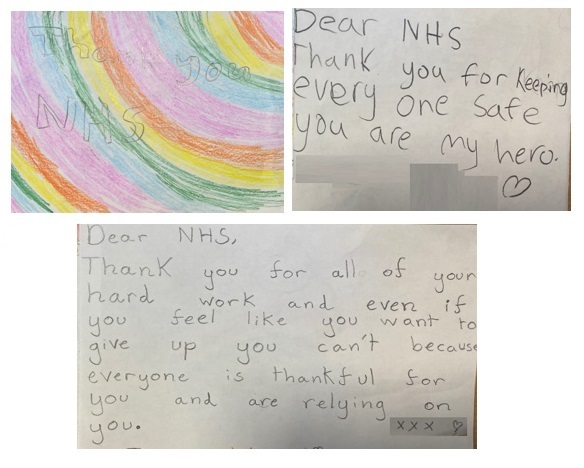 Thank you
NHS
Dear NHS
Thank you for Keeping
every one safe
you are my hero.
Dear NHS,
Thank you for all of your
hard work and even if
you feel like you want to
give up you can't because
everyone is thankful for
you and are relying on
you.
xxx